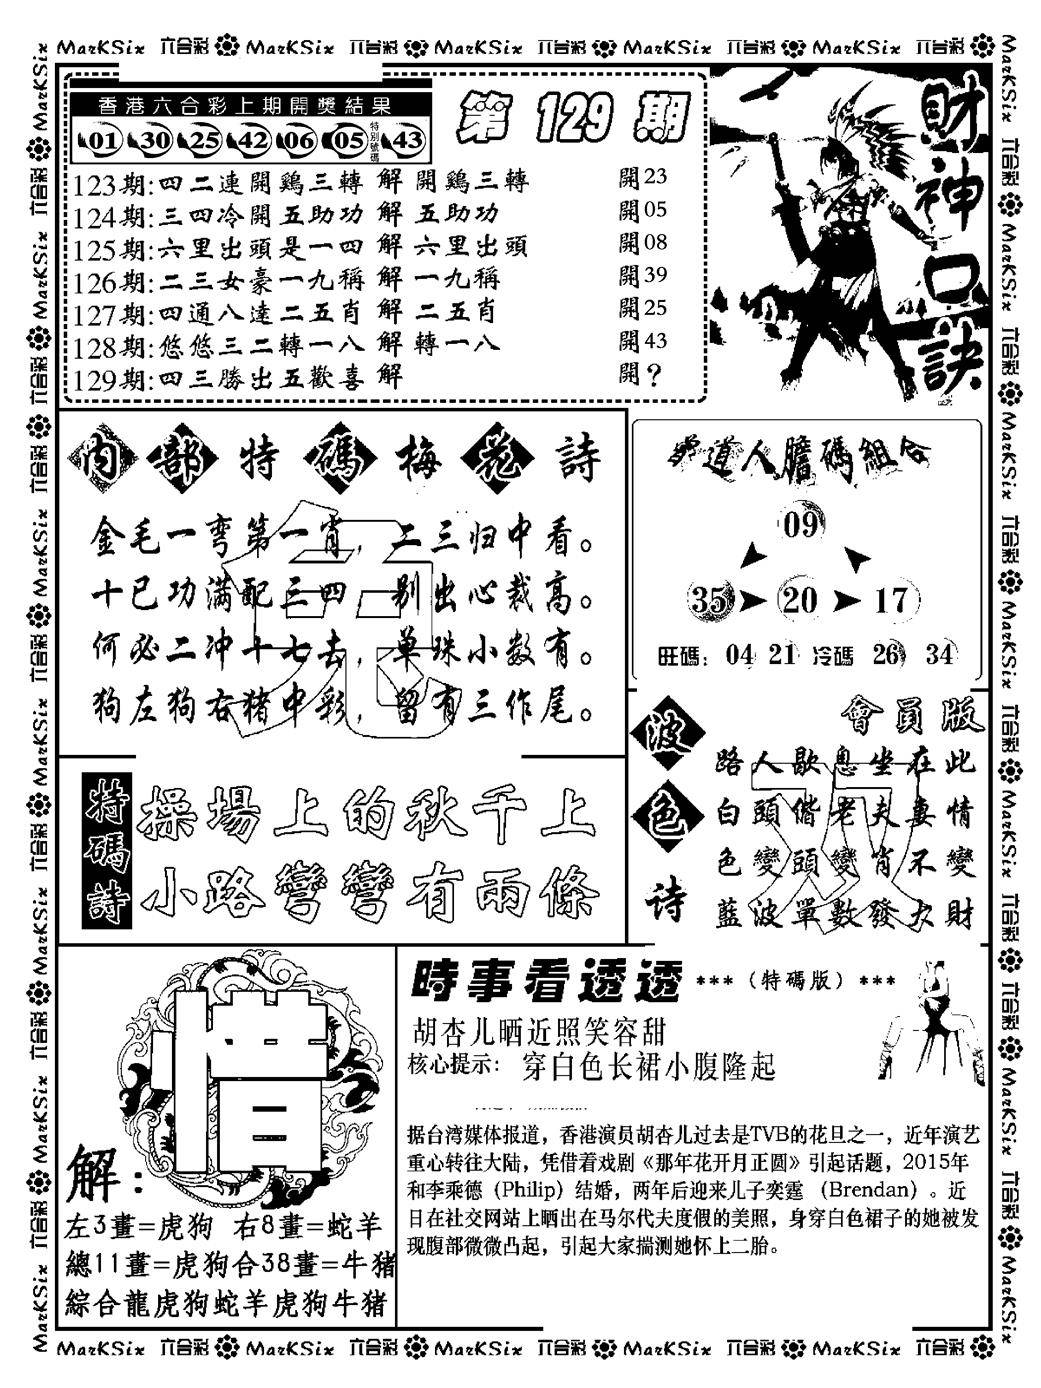 MarKSix 六合彩 MarKSix 六合彩 MarKSix 六合彩 MarKSix 六合彩 MarKSix 六合彩
香港六合彩上期開獎結果
01 30 25 42 06 05 特別號碼 43
第 129 期
123期:四二連開鷄三轉 解 開鷄三轉 開23
124期:三四冷開五助功 解 五助功 開05
125期:六里出頭是一四 解 六里出頭 開08
126期:二三女豪一九稱 解 一九稱 開39
127期:四通八達二五肖 解 二五肖 開25
128期:悠悠三二轉一八 解 轉一八 開43
129期:四三勝出五歡喜 解 開?
財神口訣
内部特碼梅花詩
金毛一弯第一肖，二三归中看。
十已功满配三四 别出心裁高。
何必二冲十七去，单珠小数有。
狗左狗右猪中彩，留有三作尾。
兔
道人膽碼組合
09
35 20 17
旺碼: 04 21 冷碼 26 34
特碼詩
操場上的秋千上
小路彎彎有兩條
波色诗
會員版
路人歇息坐在此
白頭偕老夫妻情
色變頭變肖不變
藍波單數發大財
時事看透透 *** (特碼版) ***
胡杏儿晒近照笑容甜
核心提示: 穿白色长裙小腹隆起
据台湾媒体报道，香港演员胡杏儿过去是TVB的花旦之一，近年演艺
重心转往大陆，凭借着戏剧《那年花开月正圆》引起话题，2015年
和李乘德（Philip）结婚，两年后迎来儿子奕霆 （Brendan）。近
日在社交网站上晒出在马尔代夫度假的美照，身穿白色裙子的她被发
现腹部微微凸起，引起大家揣测她怀上二胎。
惜
解:
左3畫=虎狗 右8畫=蛇羊
總11畫=虎狗合38畫=牛猪
綜合龍虎狗蛇羊虎狗牛猪
MarKSix 六合彩 MarKSix 六合彩 MarKSix 六合彩 MarKSix 六合彩 MarKSix 六合彩